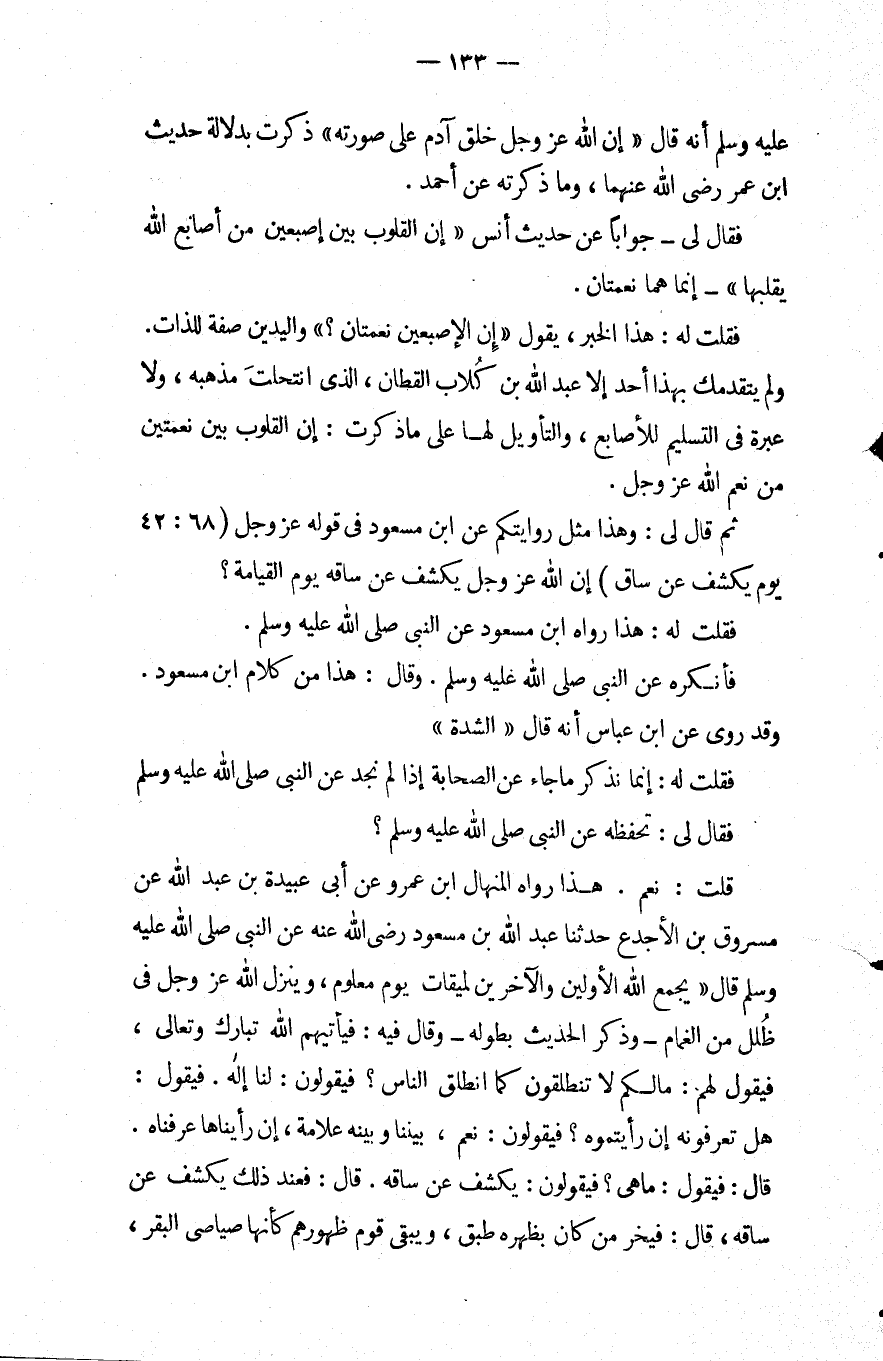 — ١٣٣ —
عليه وسلم أنه قال « إن الله عز وجل خلق آدم على صورته» ذكرت بدلالة حديث
ابن عمر رضى الله عنهما ، وما ذكرته عن أحمد .
فقال لى ــ جواباً عن حديث أنس « إن القلوب بين إصبعين من أصابع الله
يقلبها » ــ إنما هما نعمتان .
فقلت له : هذا الخبر ، يقول «إن الإصبعين نعمتان ؟» واليدين صفة للذات.
ولم يتقدمك بهذا أحد إلا عبد الله بن كُلاب القطان ، الذى انتحلتَ مذهبه ، ولا
عبرة فى التسليم للأصابع ، والتأويل لهــا على ماذكرت : إن القلوب بين نعمتين
من نعم الله عز وجل .
ثم قال لى : وهذا مثل روايتكم عن ابن مسعود فى قوله عز وجل ( ٦٨ : ٤٢
يوم يكشف عن ساق ) إن الله عز وجل يكشف عن ساقه يوم القيامة ؟
فقلت له : هذا رواه ابن مسعود عن النبى صلى الله عليه وسلم .
فأنــكره عن النبى صلى الله غليه وسلم . وقال : هذا من كلام ابن مسعود .
وقد روى عن ابن عباس أنه قال « الشدة »
فقلت له : إنما نذكر ماجاء عن الصحابة إذا لم نجد عن النبى صلى الله عليه وسلم
فقال لى : تحفظه عن النبى صلى الله عليه وسلم ؟
قلت : نعم . هــذا رواه المنهال ابن عمرو عن أبى عبيدة بن عبد الله عن
مسروق بن الأجدع حدثنا عبد الله بن مسعود رضى الله عنه عن النبى صلى الله عليه
وسلم قال« يجمع الله الأولين والآخرين لميقات يوم معلوم ، وينزل الله عز وجل فى
ظُلل من الغمام ــ وذكر الحديث بطوله ــ وقال فيه : فيأتيهم الله تبارك وتعالى ،
فيقول لهم : مالــكم لا تنطلقون كما انطلق الناس ؟ فيقولون : لنا إلٰه . فيقول :
هل تعرفونه إن رأيتموه ؟ فيقولون : نعم ، بيننا وبينه علامة ، إن رأيناها عرفناه .
قال : فيقول : ماهى ؟ فيقولون : يكشف عن ساقه . قال : فعند ذلك يكشف عن
ساقه ، قال : فيخر من كان بظهره طبق ، ويبقى قوم ظهورهم كأنها صياصى البقر ،